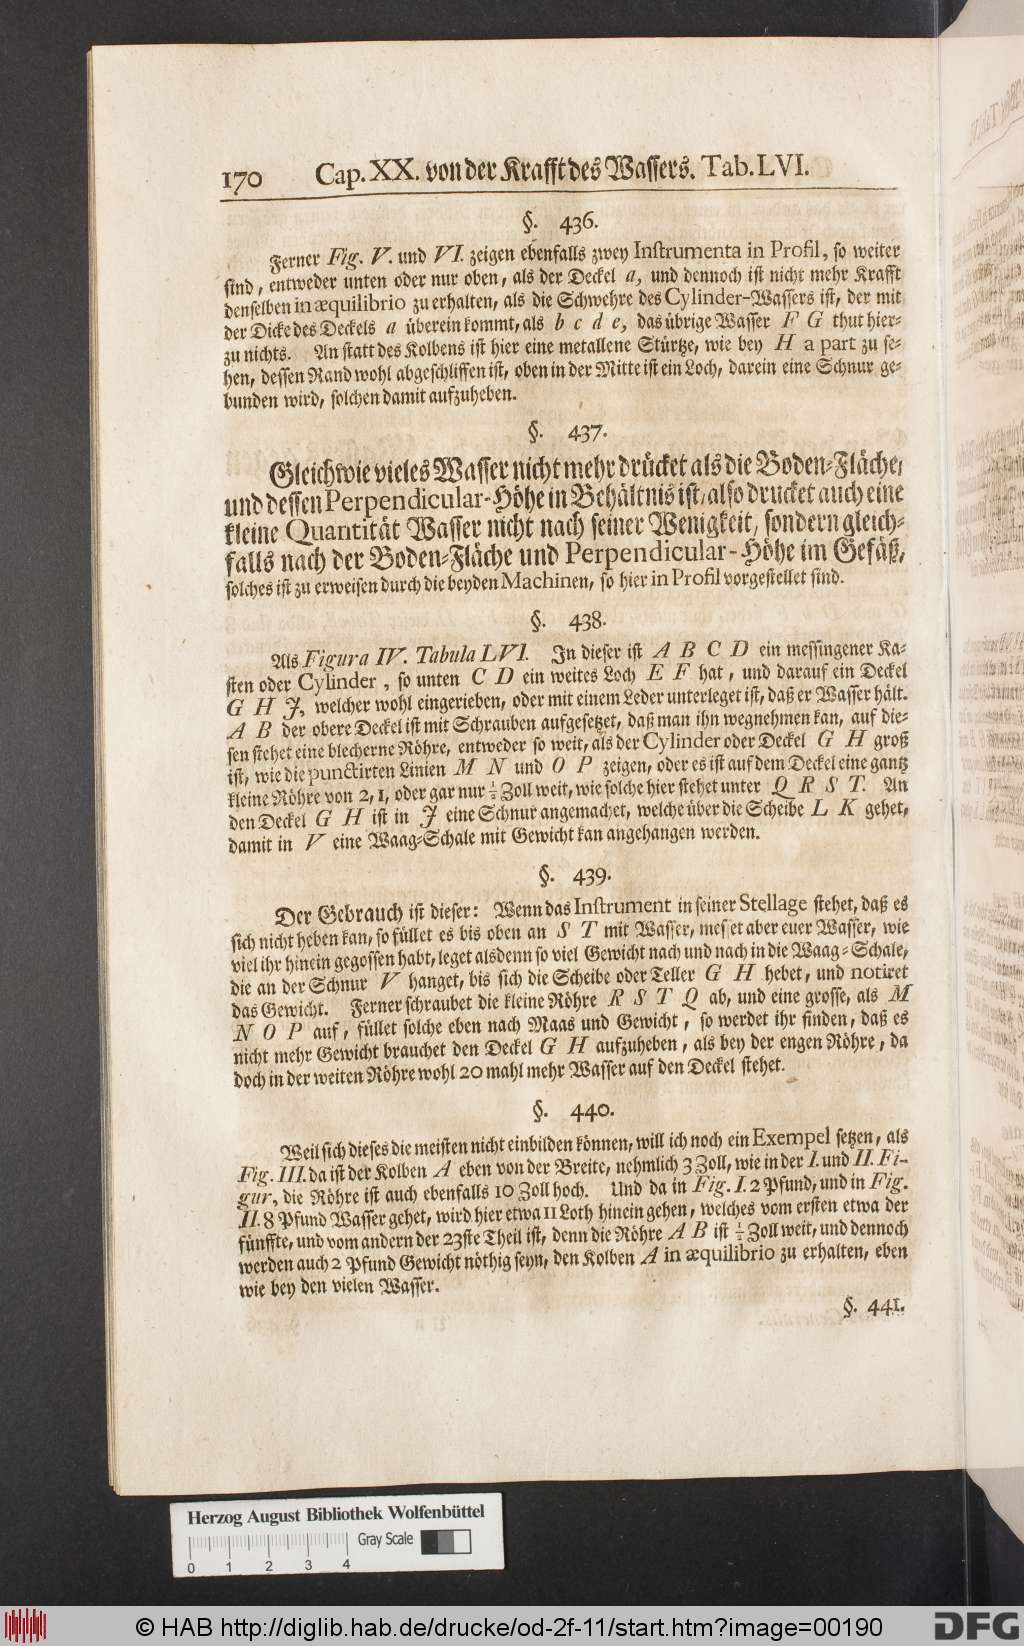 170 Cap. XX. von der Krafft des Wassers. Tab. LVI.
§. 436.
Ferner Fig. V. und VI. zeigen ebenfalls zwey Instrumenta in Profil, so weiter
sind, entweder unten oder nur oben, als der Deckel a, und dennoch ist nicht mehr Krafft
denselben in æquilibrio zu erhalten, als die Schwehre des Cylinder-Wassers ist, der mit
der Dicke des Deckels a überein kommt, als b c d e, das übrige Wasser F G thut hier-
zu nichts. An statt des Kolbens ist hier eine metallene Stürtze, wie bey H a part zu se-
hen, dessen Rand wohl abgeschliffen ist, oben in der Mitte ist ein Loch, darein eine Schnur ge-
bunden wird, solchen damit aufzuheben.
§. 437.
Gleichwie vieles Wasser nicht mehr drücket als die Boden-Fläche,
und dessen Perpendicular-Höhe in Behältnis ist, also drucket auch eine
kleine Quantität Wasser nicht nach seiner Wenigkeit, sondern gleich-
falls nach der Boden-Fläche und Perpendicular-Höhe im Gefäß,
solches ist zu erweisen durch die beyden Machinen, so hier in Profil vorgestellet sind.
§. 438.
Als Figura IV. Tabula LVI. In dieser ist A B C D ein messingener Ka-
sten oder Cylinder, so unten C D ein weites Loch E F hat, und darauf ein Deckel
G H J, welcher wohl eingerieben, oder mit einem Leder unterleget ist, daß er Wasser hält.
A B der obere Deckel ist mit Schrauben aufgesetzet, daß man ihn wegnehmen kan, auf die-
sen stehet eine blecherne Röhre, entweder so weit, als der Cylinder oder Deckel G H groß
ist, wie die punctirten Linien M N und O P zeigen, oder es ist auf dem Deckel eine gantz
kleine Röhre von 2, 1, oder gar nur ½ Zoll weit, wie solche hier stehet unter Q R S T. An
den Deckel G H ist in J eine Schnur angemachet, welche über die Scheibe L K gehet,
damit in V eine Waag-Schale mit Gewicht kan angehangen werden.
§. 439.
Der Gebrauch ist dieser: Wenn das Instrument in seiner Stellage stehet, daß es
sich nicht heben kan, so füllet es bis oben an S T mit Wasser, messet aber euer Wasser, wie
viel ihr hinein gegossen habt, leget alsdenn so viel Gewicht nach und nach in die Waag-Schale,
die an der Schnur V hanget, bis sich die Scheibe oder Teller G H hebet, und notiret
das Gewicht. Ferner schraubet die kleine Röhre R S T Q ab, und eine grosse, als M
N O P auf, füllet solche eben nach Maas und Gewicht, so werdet ihr finden, daß es
nicht mehr Gewicht brauchet den Deckel G H aufzuheben, als bey der engen Röhre, da
doch in der weiten Röhre wohl 20 mahl mehr Wasser auf den Deckel stehet.
§. 440.
Weil sich dieses die meisten nicht einbilden können, will ich noch ein Exempel setzen, als
Fig. III. da ist der Kolben A eben von der Breite, nehmlich 3 Zoll, wie in der I. und II. Fi-
gur, die Röhre ist auch ebenfalls 10 Zoll hoch. Und da in Fig. I. 2 Pfund, und in Fig.
II. 8 Pfund Wasser gehet, wird hier etwa 11 Loth hinein gehen, welches vom ersten etwa der
fünffte, und vom andern der 23ste Theil ist, denn die Röhre A B ist ½ Zoll weit, und dennoch
werden auch 2 Pfund Gewicht nöthig seyn, den Kolben A in æquilibrio zu erhalten, eben
wie bey den vielen Wasser.
§. 441.
Herzog August Bibliothek Wolfenbüttel
Gray Scale
0 1 2 3 4
© HAB http://diglib.hab.de/drucke/od-2f-11/start.htm?image=00190
DFG